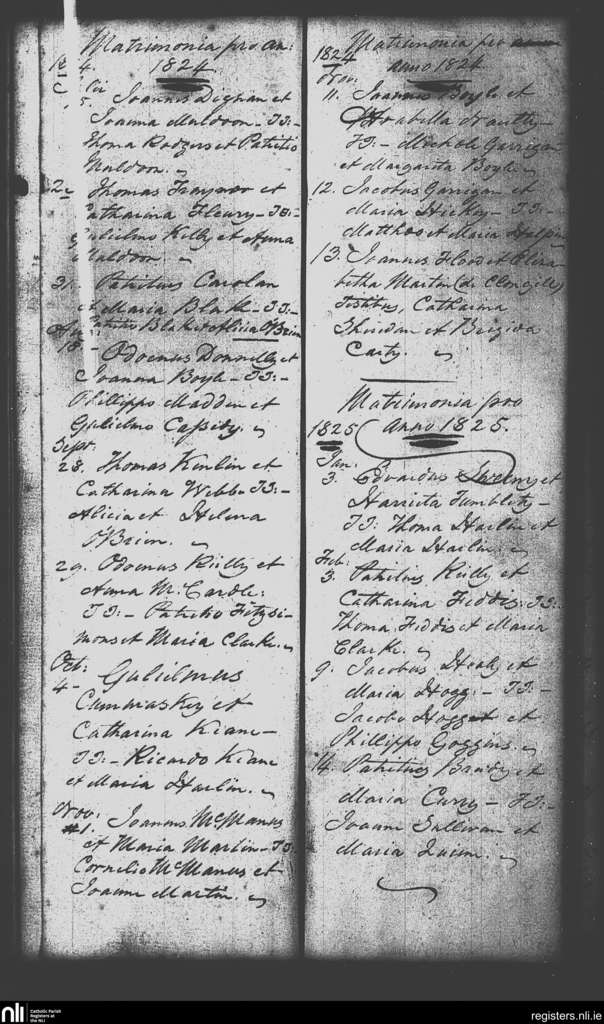 Matrimonia pro an:
1824
5. Joannes Dignan et
Joanna Muldoon. TT:-
Thoma Rodgers et Patritio
Muldoon.
Thomas et
Catharina Fleury - TT:-
Gulielmo Kelly et Anna
Muldoon.
31. Patritius Carolan
et Maria Blake - TT:-
Patritio Blake et Alicia O'Brien
18. - Odoenus Donnelly et
Joanna Boyle - TT:-
Phillippo Madden et
Gulielmo Cassidy.
Sept:
28. Thomas Kinlin et
Catharina Webb - TT:-
Alicia et Helena
O'Brien.
29. Odoenus Reilly et
Anna McCardle:
TT:- Patritio Fitzsi-
mons et Maria Clarke.
Oct:
4 - Gulielmus
Cummaskey et
Catharina Kiane -
TT:- Ricardo Kiane
et Maria Harlin.
Nov:
#1. Joannes McManus
et Maria Martin - TT:
Cornelio McManus et
Joanne Martin.
Matrimonia pro
anno 1824
1824
Nov:
11. Joannes Boyle et
Arabella
TT:- Michole Garrigan
et Margarita Boyle.
12. Jacobus Garrigan et
Maria Hickey - TT:-
Matthao et Maria Halpin
13. Joannes et Eliza-
betha Martin (de Clongill)
Testibus, Catharina
Sheridan et Brigida
Carty.
Matrimonia pro
Anno 1825.
1825
Jan:
3. Edvardus et
Harrieta Tumblety -
TT: Thoma Harlin et
Maria Harlin.
Feb:
3. Patritius Reilly et
Catharina Fiddis: TT:-
Thoma Fiddis et Maria
Clarke.
9. Jacobus Healy et
Maria Hogg: - TT:-
Jacobo Hogg et
Phillippo Goggins.
14. Patritius Brady et
Maria Curry - TT:-
Joanne Sullivan et
Maria Quinn.
nli
Catholic Parish
Registers at
the NLI
registers.nli.ie